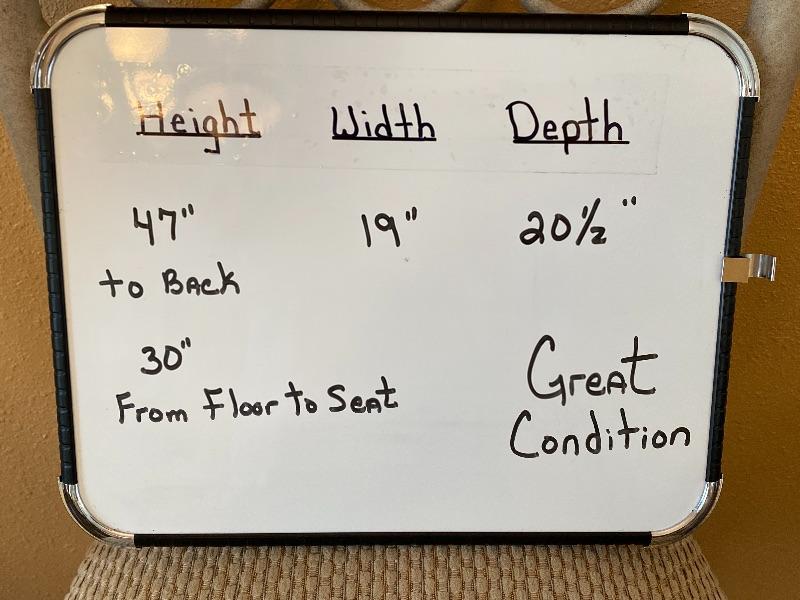 Height Width Depth
47" 19" 20 1/2"
to Back
30"
From Floor to Seat
Great
Condition